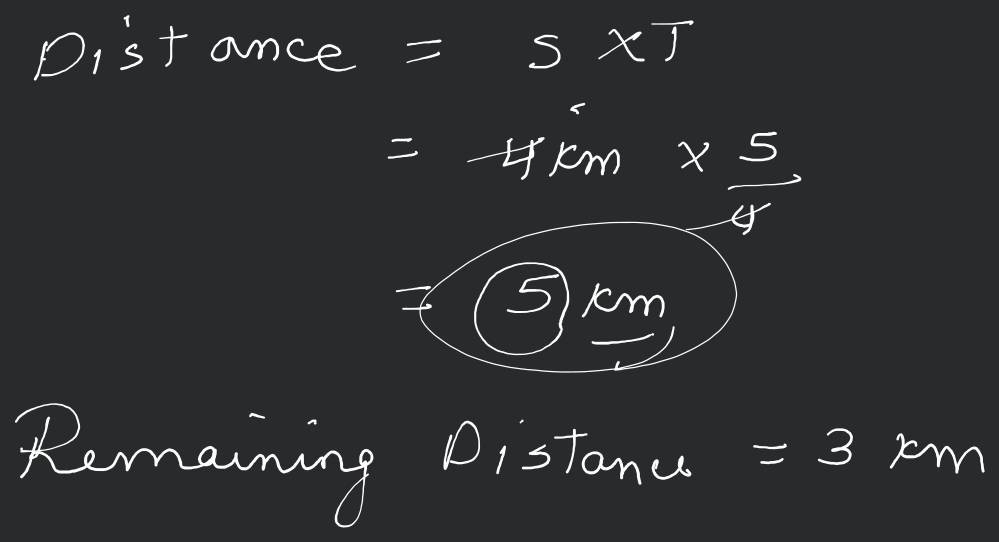 Distance = S X T
= 4 km x 5/4
= 5 km
Remaining Distance = 3 km